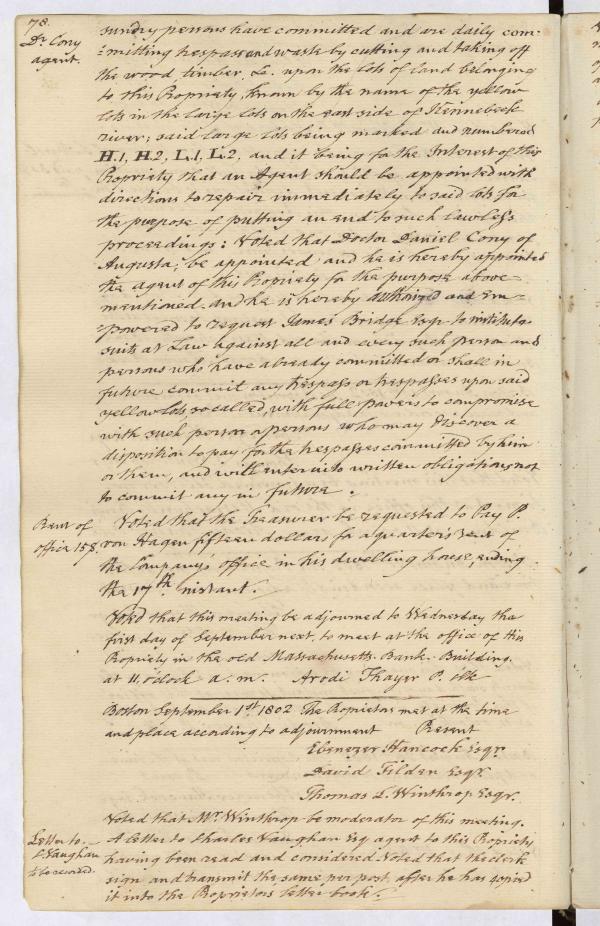 78.
Dr. Cony
agent.
sundry persons have committed and are daily com-
-mitting trespass and waste by cutting and taking off
the wood, timber, &c. upon the lots of land belonging
to this Propriety, known by the name of the yellow
lots in the large lots on the east side of Kennebeck
river; said large lots being marked and numbered
H.1, H.2, L.1, L.2, and it being for the Interest of this
Propriety that an Agent should be appointed with
directions to repair immediately to said lots for
the purpose of putting an end to such lawless
proceedings: Voted that Doctor Daniel Cony of
Augusta, be appointed and he is hereby appointed
the agent of this Propriety for the purpose above-
mentioned. and he is hereby authorized and Em-
-powered to request James Bridge Esqr. to institute
suits at Law against all and every such person and
persons who have already committed or shall in
future commit any trespass or trespasses upon said
yellow lots, so called, with full powers to compromise
with such person or persons who may discover a
disposition to pay for the trespasses committed by him
or them, and will enter into written obligations, not
to commit any in future.
Rent of
office 15$.
Voted that the Treasurer be requested to Pay P.
von Hagen fifteen dollars for a quarter's rent of
the Company's office in his dwelling house, ending
the 17th. instant.
Voted that this meeting be adjourned to Wednesday the
first day of September next, to meet at the office of this
Propriety in the old Massachusetts Bank Building.
at 11. o'clock a.m. Arodi Thayer P. Clk
Boston September 1st. 1802 The Proprietors met at the time
and place according to adjournment Present
Ebenezer Hancock Esqr.
David Tilden Esqr.
Thomas L. Winthrop Esqr.
Voted that Mr. Winthrop be moderator of this meeting.
Letter to
C. Vaughan
to be recorded.
A letter to Charles Vaughan Esq agent to this Propriety
having been read and considered Voted that the clerk
sign and transmit the same per post after he has copied
it into the Proprietors letter book.